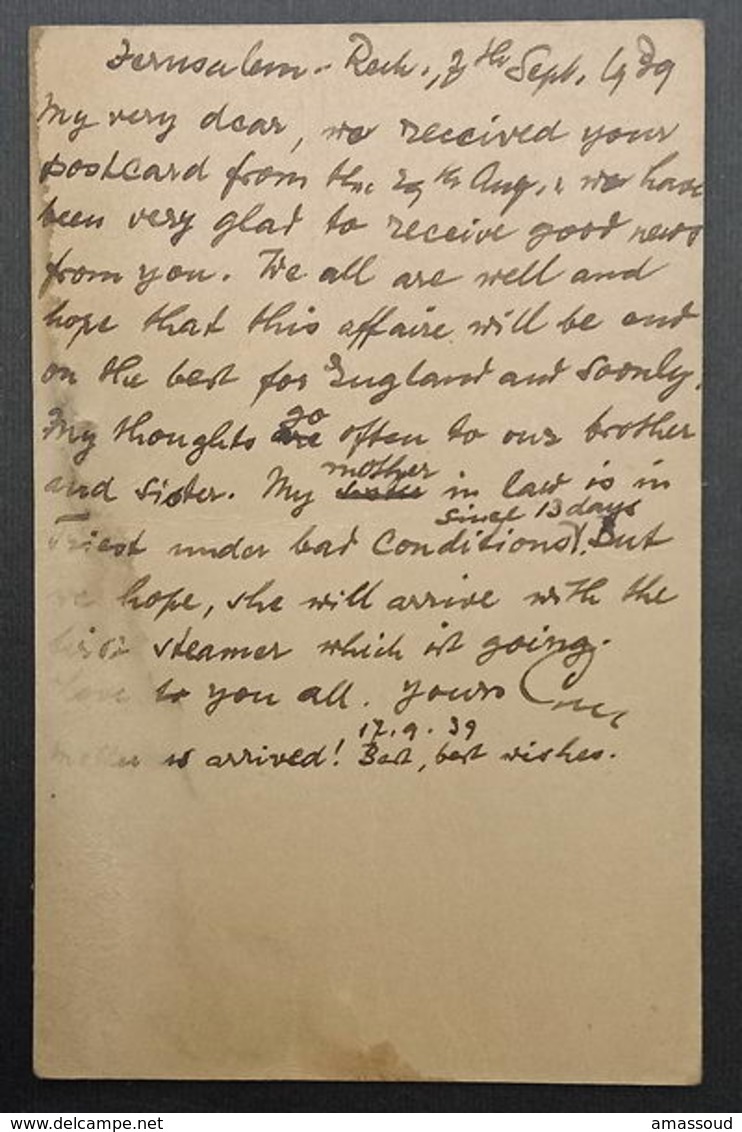 Jerusalem - Rech., 7th Sept. 1939
My very dear, we received your
postcard from the 29th Aug., we have
been very glad to receive good news
from you. We all are well and
hope that this affaire will be end
on the best for England and soonly.
My thoughts go often to our brother
and sister. My mother in law is in
since 13 days
Triest under bad conditions! But
we hope, she will arrive with the
first steamer which ist going.
Love to you all. Yours
17.9.39
Mother is arrived! Best, best wishes.
delcampe.net
amassoud